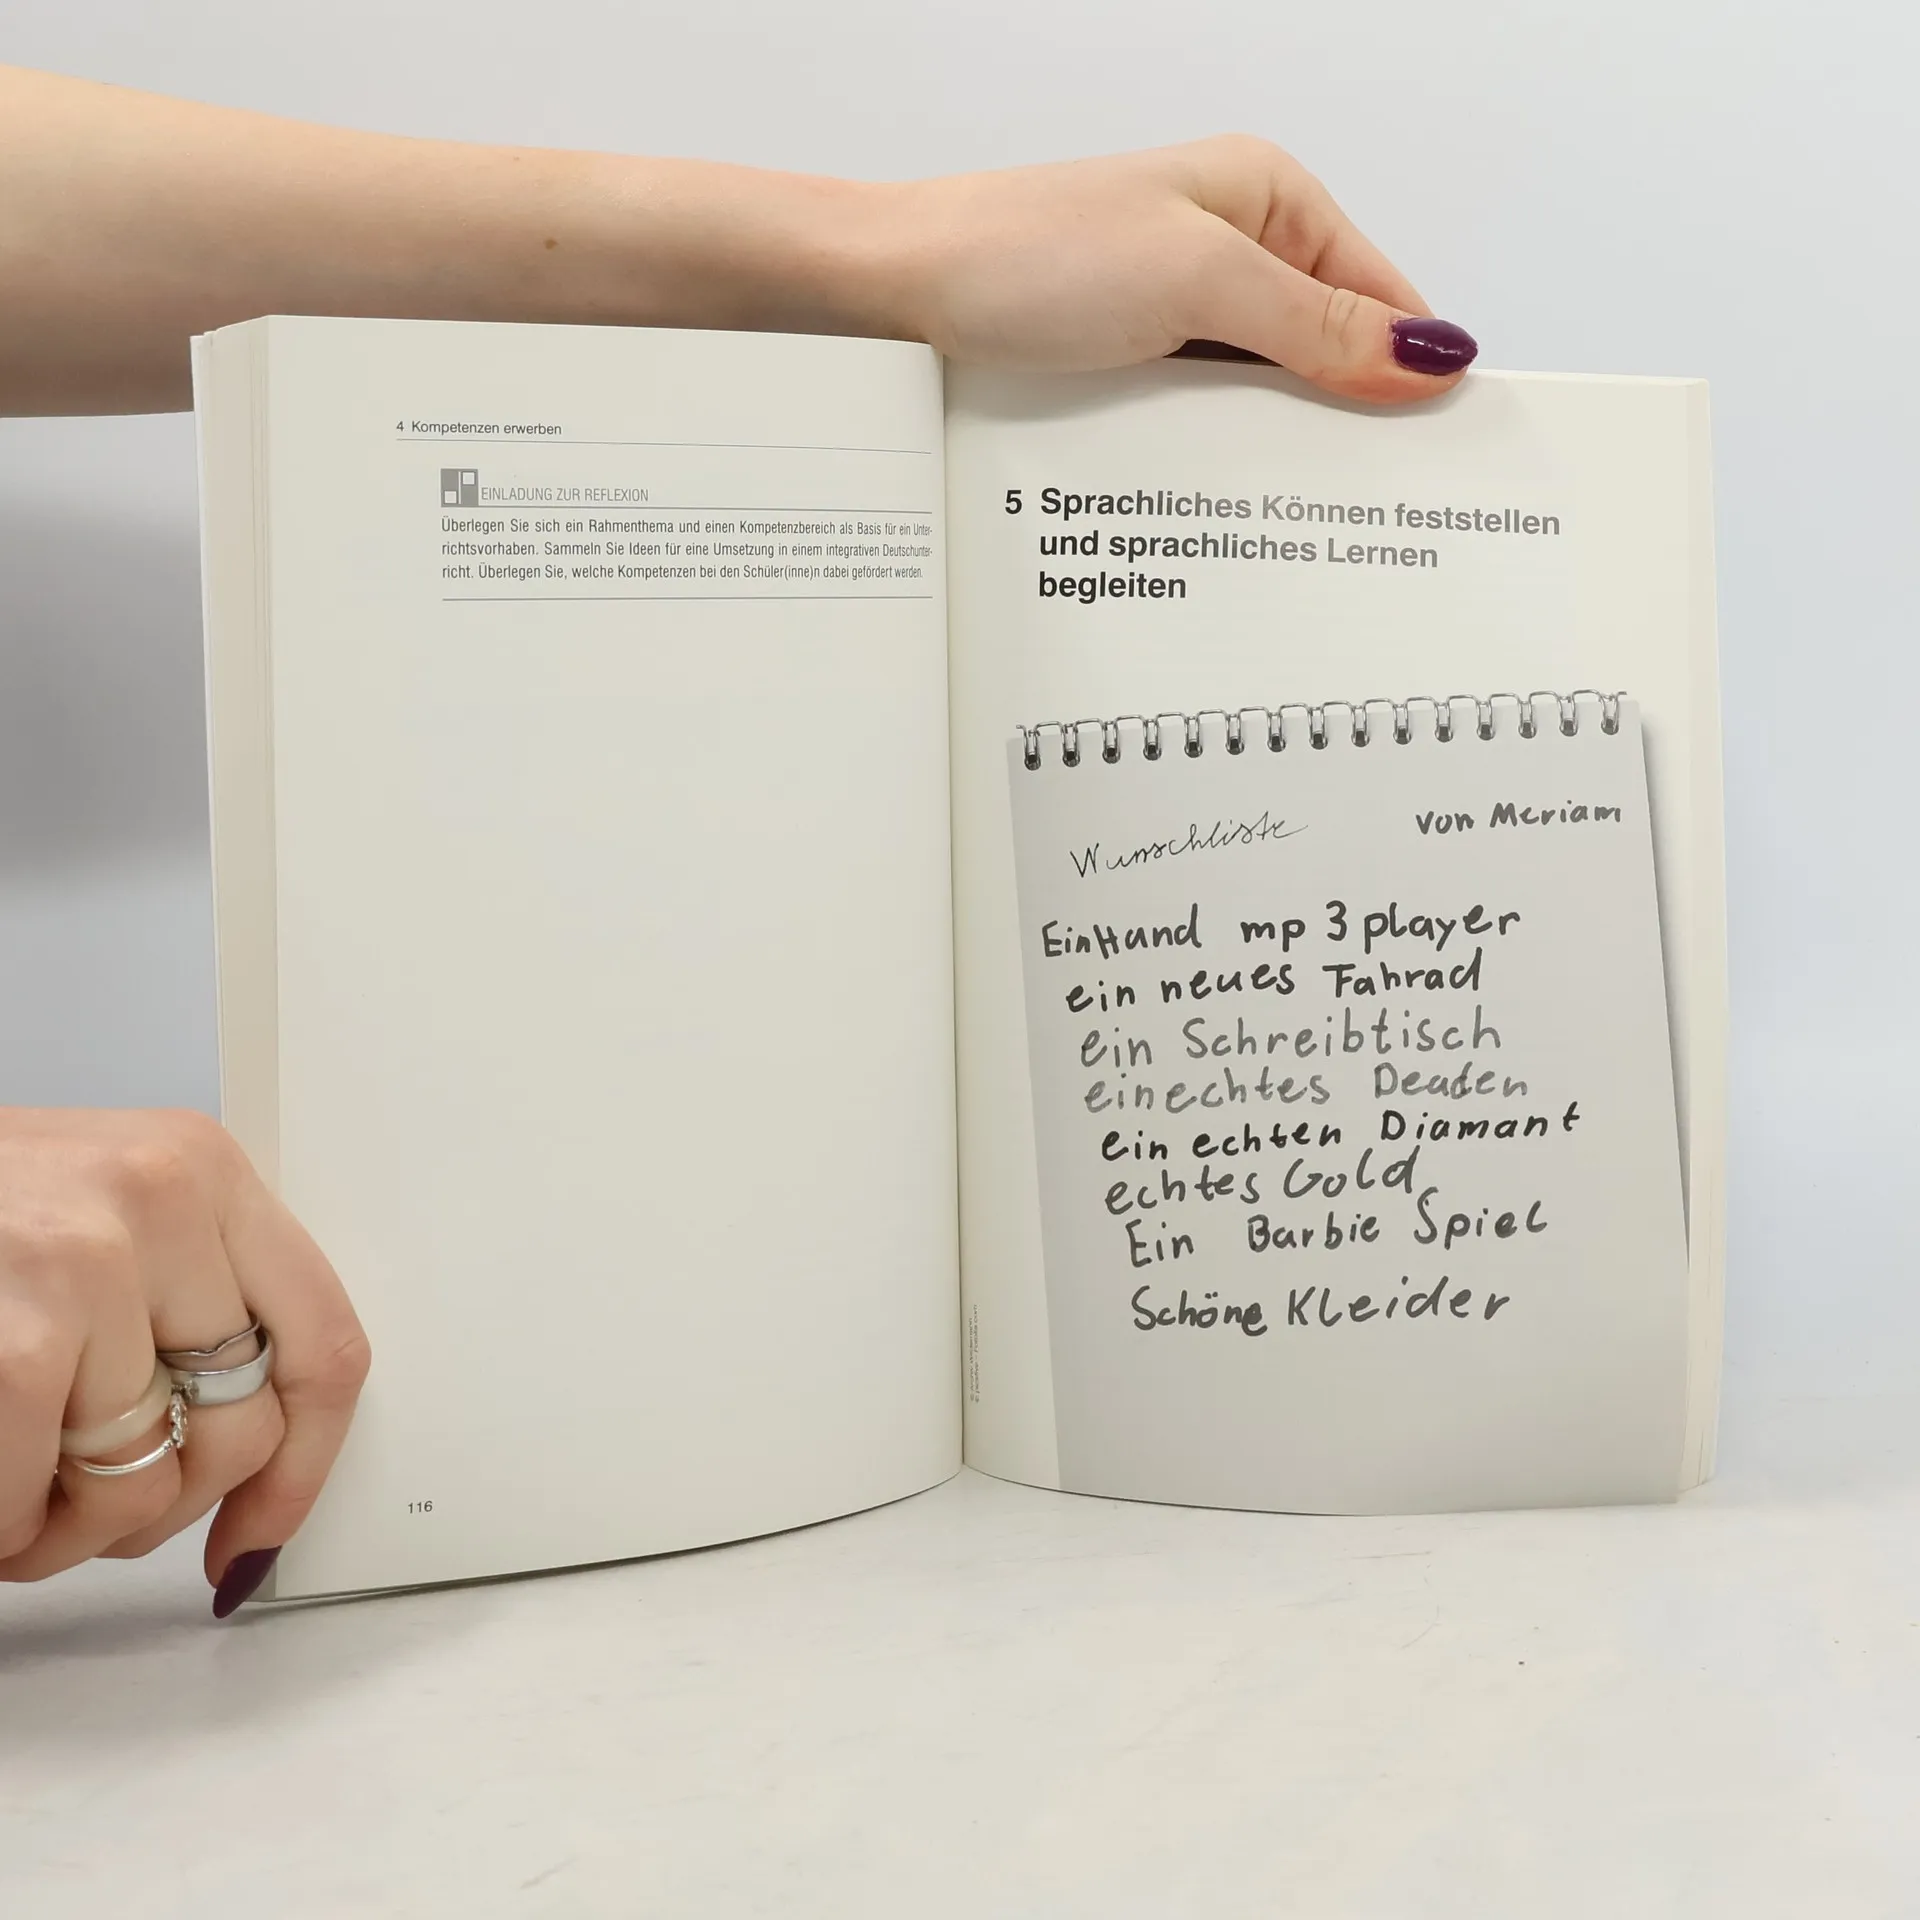 4 Kompetenzen erwerben
EINLADUNG ZUR REFLEXION
Überlegen Sie sich ein Rahmenthema und einen Kompetenzbereich als Basis für ein Unter-
richtsvorhaben. Sammeln Sie Ideen für eine Umsetzung in einem integrativen Deutschunter-
richt. Überlegen Sie, welche Kompetenzen bei den Schüler(inne)n dabei gefördert werden.
116
5 Sprachliches Können feststellen
und sprachliches Lernen
begleiten
Wunschliste
von Meriam
EinHand mp 3 player
ein neues Fahrad
ein Schreibtisch
einechtes
ein echten Diamant
echtes Gold
Ein Barbie Spiel
Schöne Kleider